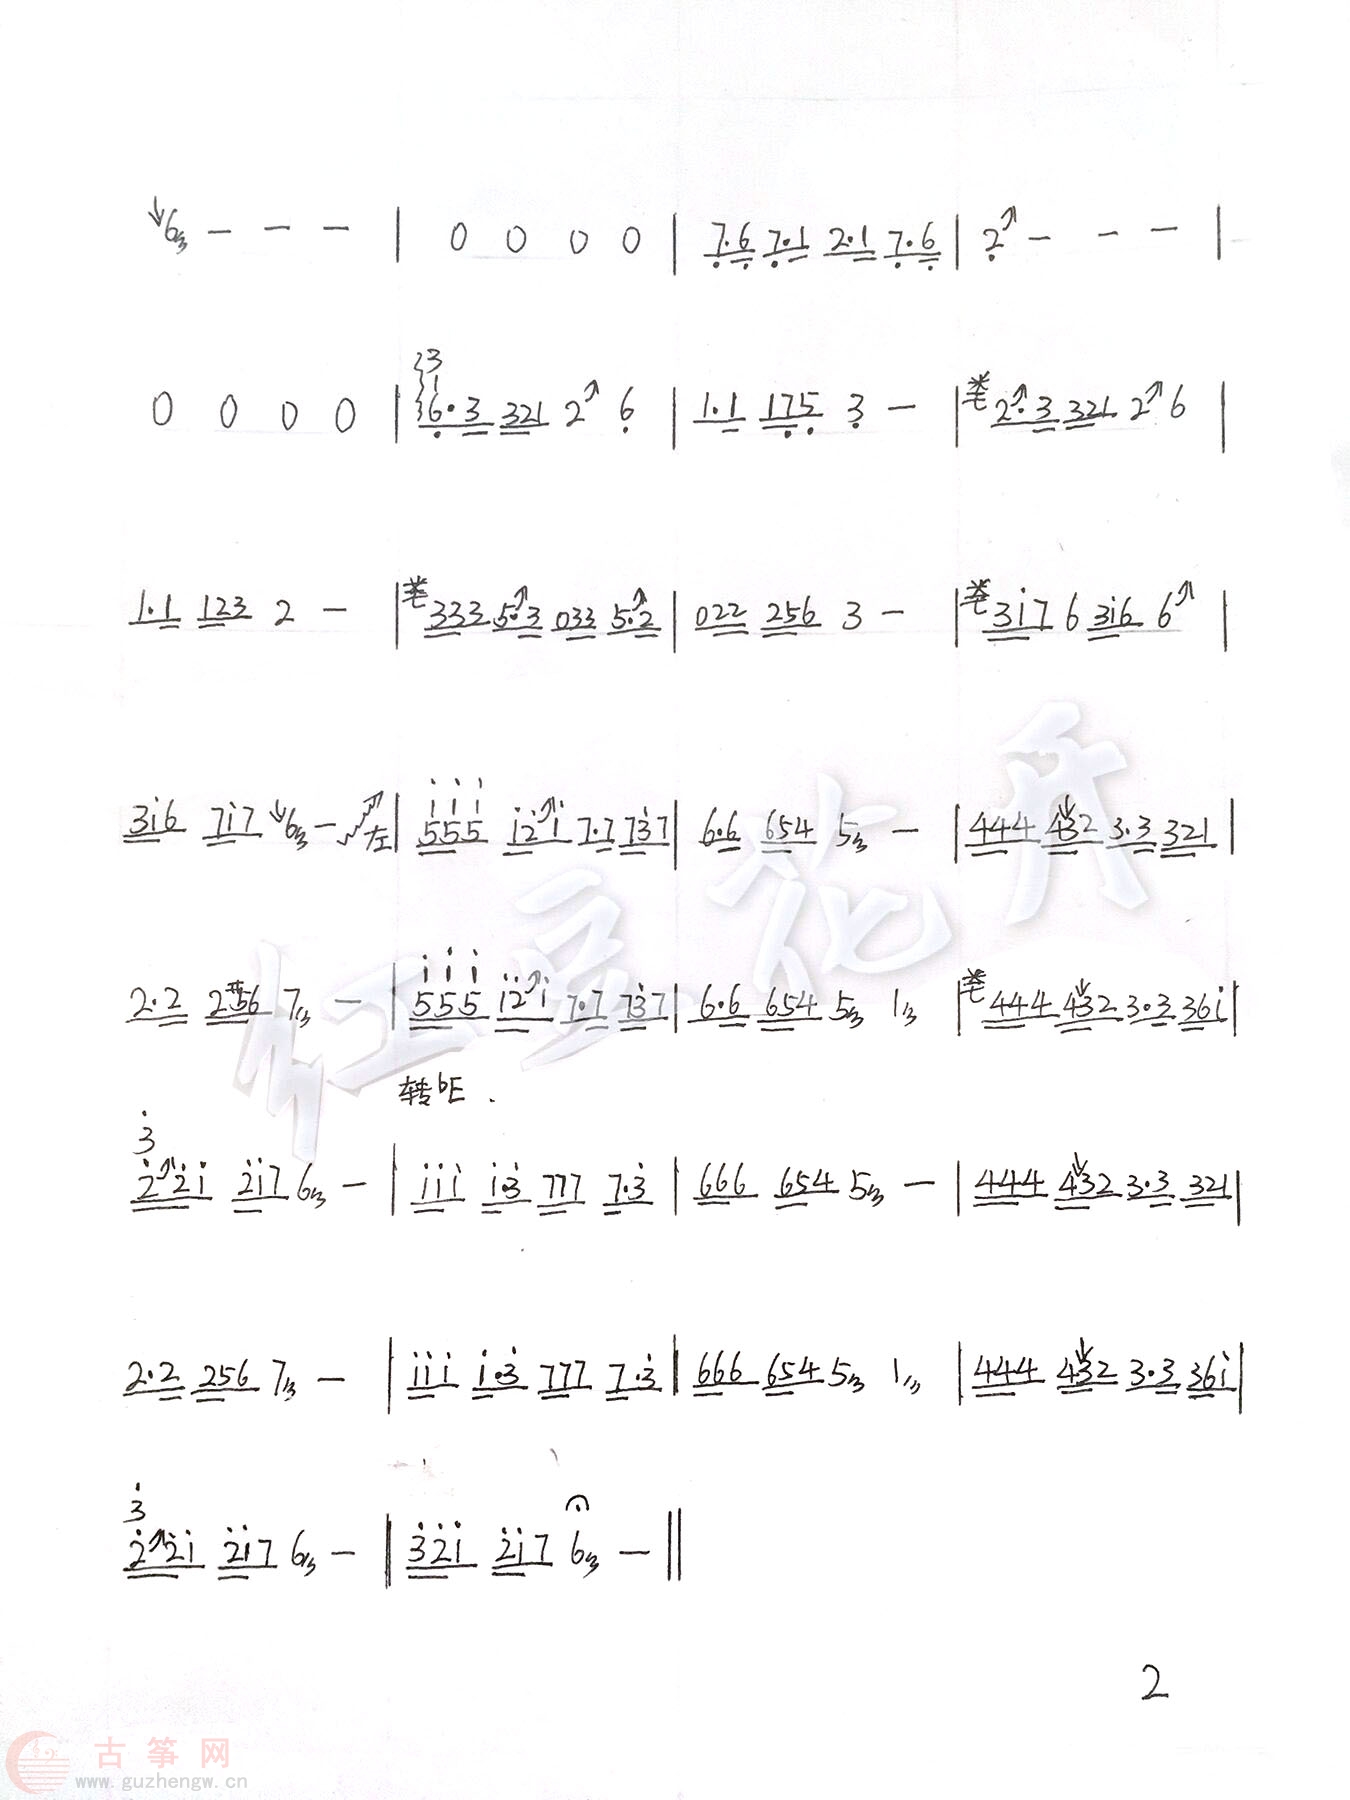 ↓6〃 — — — | 0 0 0 0 | 7̣·6̣ 7̣·1 2·1 7̣·6̣ | 2̣↗ — — — |
0 0 0 0 | 3 1 6̣·3 321 2↗ 6̣ | 1·1 17̣5̣ 3̣ — | 2↗·3 321 2↗ 6 |
1·1 123 2 — | 333 5↗·3 033 5·2↗ | 022 256 3 — | 3i7 6 3i6 6↗ |
i i i
3i6 7i7 ↓6〃 — 左 | 555 i2↗i 7·7 737 | 6·6 654 5〃 — | 444 4↓32 3·3 321 |
i i i
2·2 2#56 7〃 — | 555 i2↗i 7·7 737 | 6·6 654 5〃 1〃 | 444 4↓32 3·3 36i |
转bE .
3̇
2̇↗2̇i 2̇i7 6〃 — | iii i·3̇ 777 7·3̇ | 666 654 5〃 — | 444 4↓32 3·3 321 |
2·2 256 7〃 — | iii i·3̇ 777 7·3̇ | 666 654 5〃 1〃 | 444 4↓32 3·3 36i |
3̇
2̇↗2̇i 2̇i7 6〃 — ‖ 3̇2̇i 2̇i7 6〃 — ‖
红豆花开
2
古筝网
www.guzhengw.cn